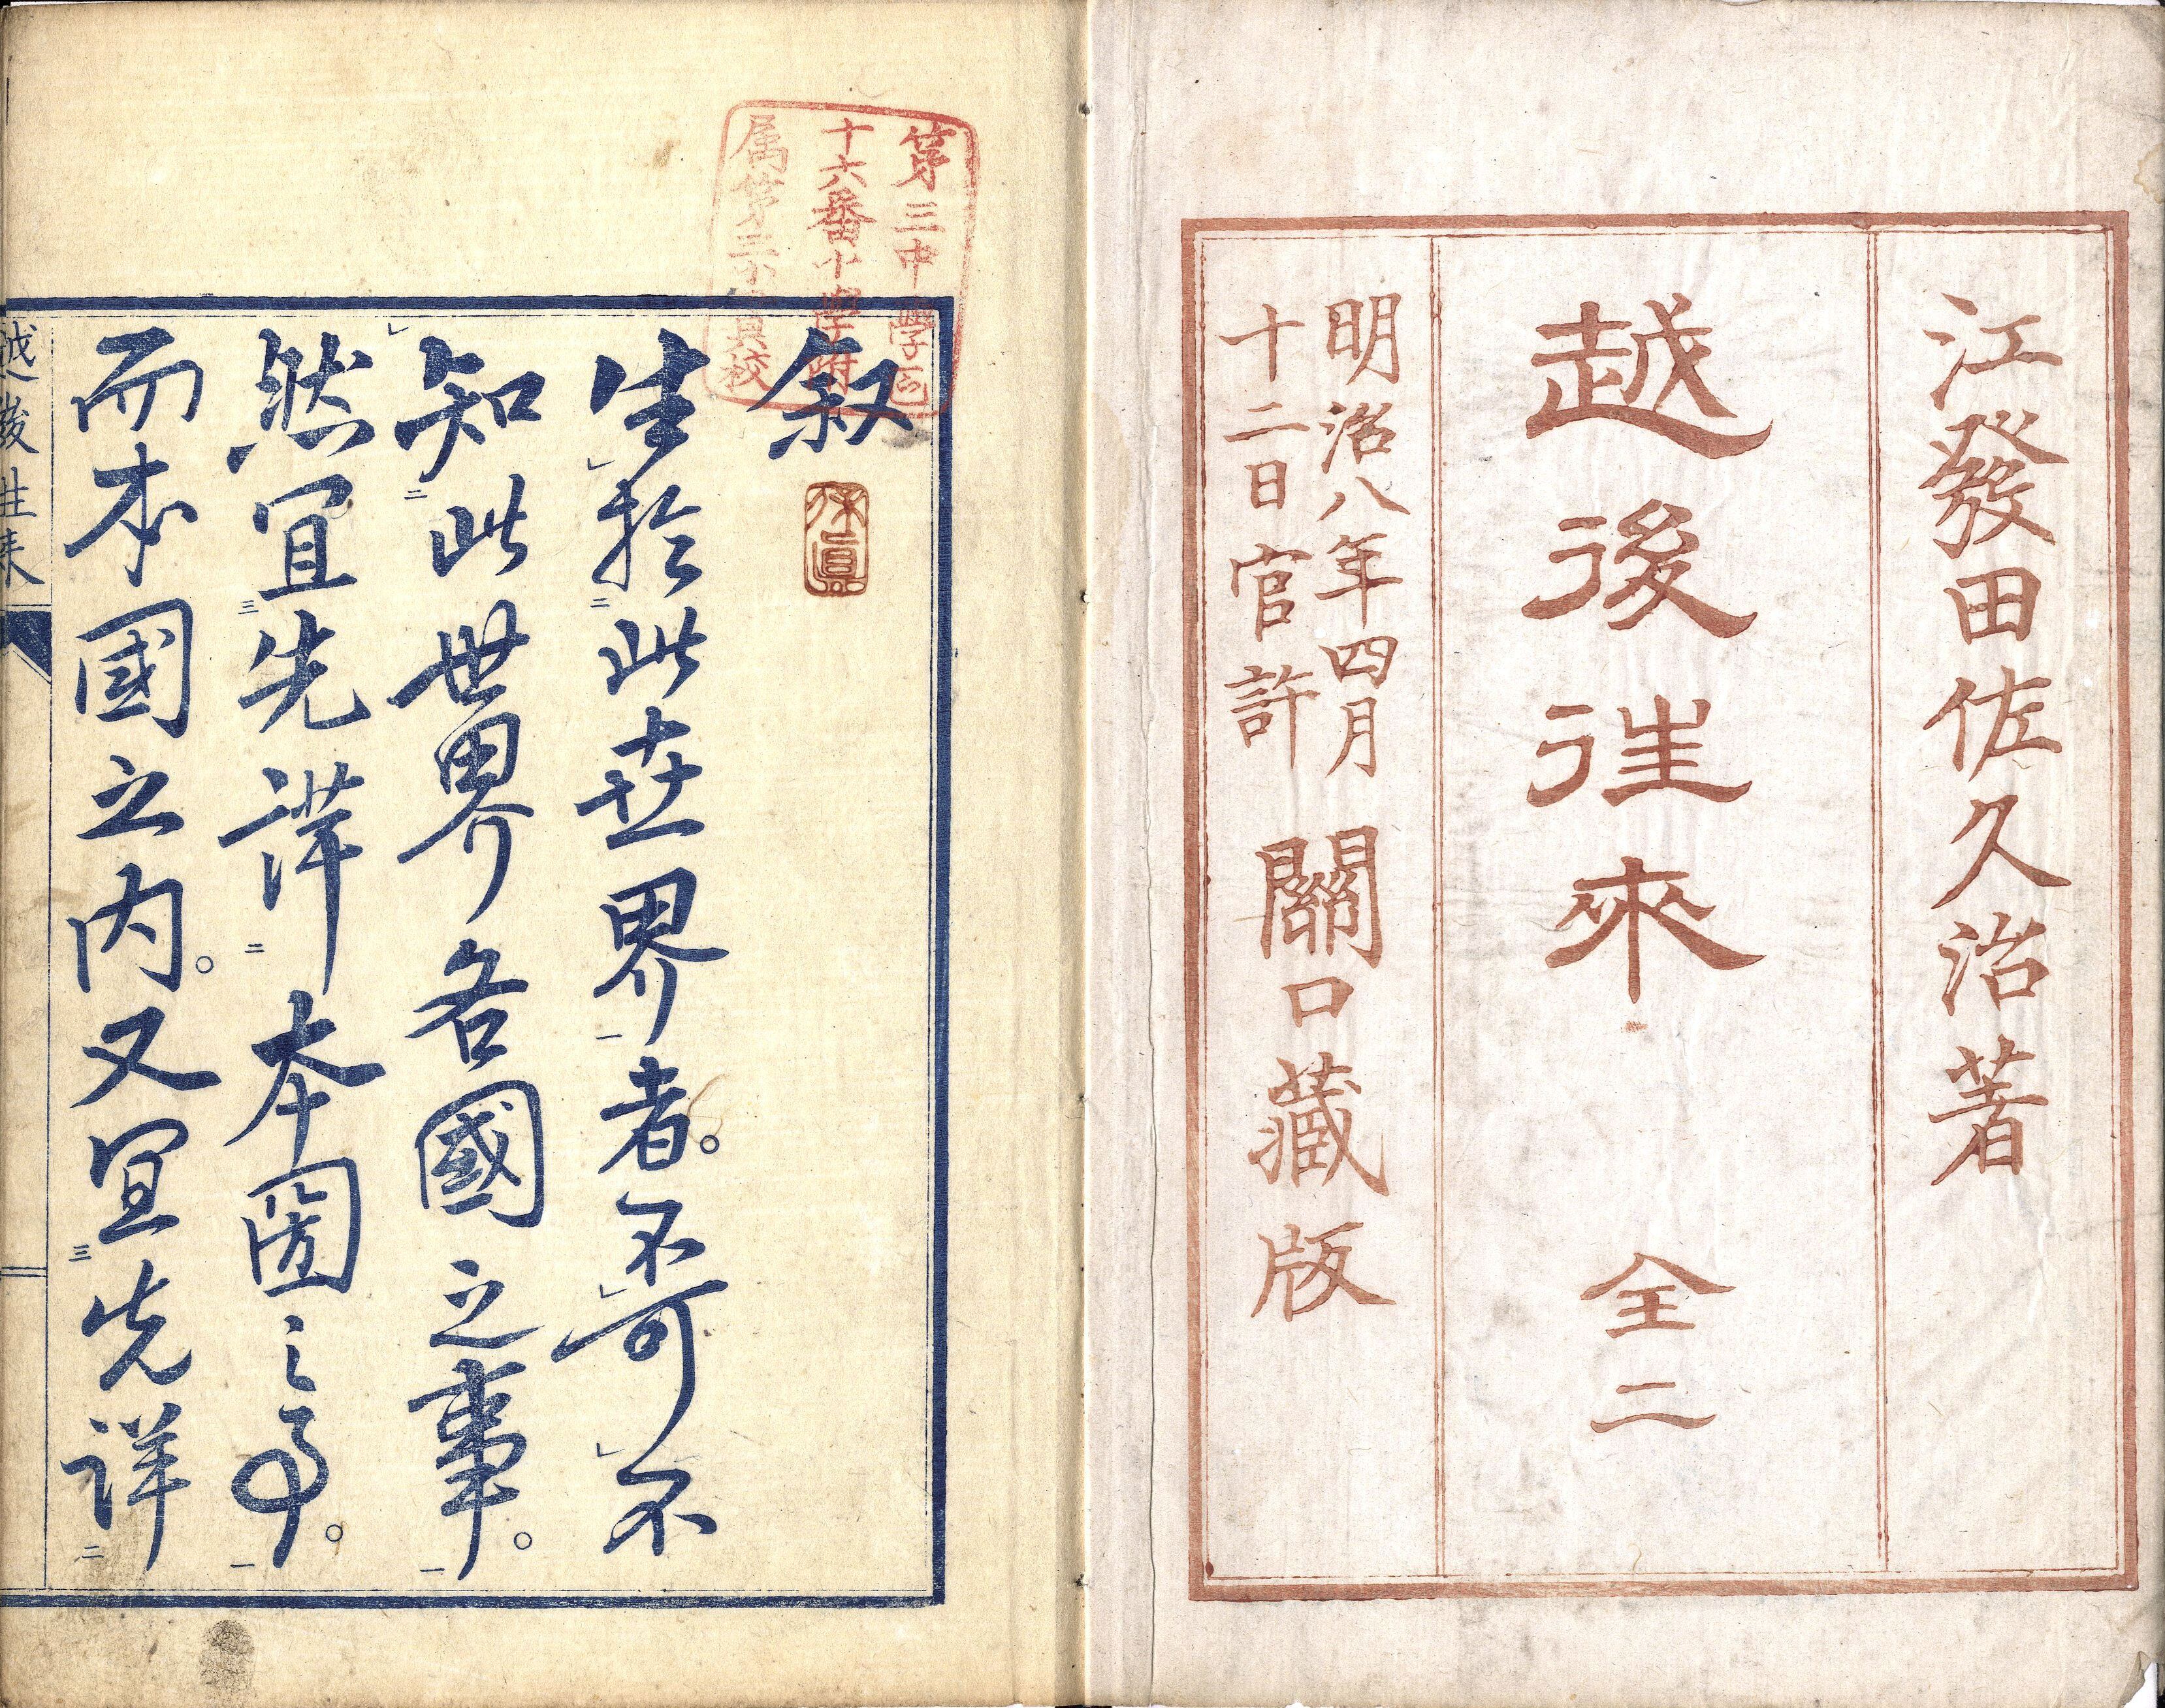 江發田佐久治著
越後徃來 全二
明治八年四月
十二日官許
關口藏版
第三中學區
十六番中學附
属第三
校
叙
生於此世界者。不可不
知此世界各國之事。
然宜先詳本圀之事。
而本國之内。又宜先詳
越後往来